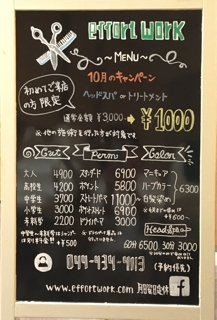 effort work
~ MENU ~
10月のキャンペーン
初めてご来店の方限定
ヘッドスパ or トリートメント
通常金額 ¥3,000→ ¥1000
※他の施術を行った方が対象です
Cut
大人 4900
高校生 4200
中学生 3900
小学生 3000
未就学 2200
+¥500
Perm
スタンダード 6900
ポイント 5800
ストレートパーマ 11000~
ポイントストレート 6900
ドライパーマ 3000
Color
マニキュア
ハーブカラー
6300
白髪染め
+¥500
Head Spa
60分 6500 30分 3000
044-434-4113
(予約優先)
www.effortwork.com 月曜日定休
f